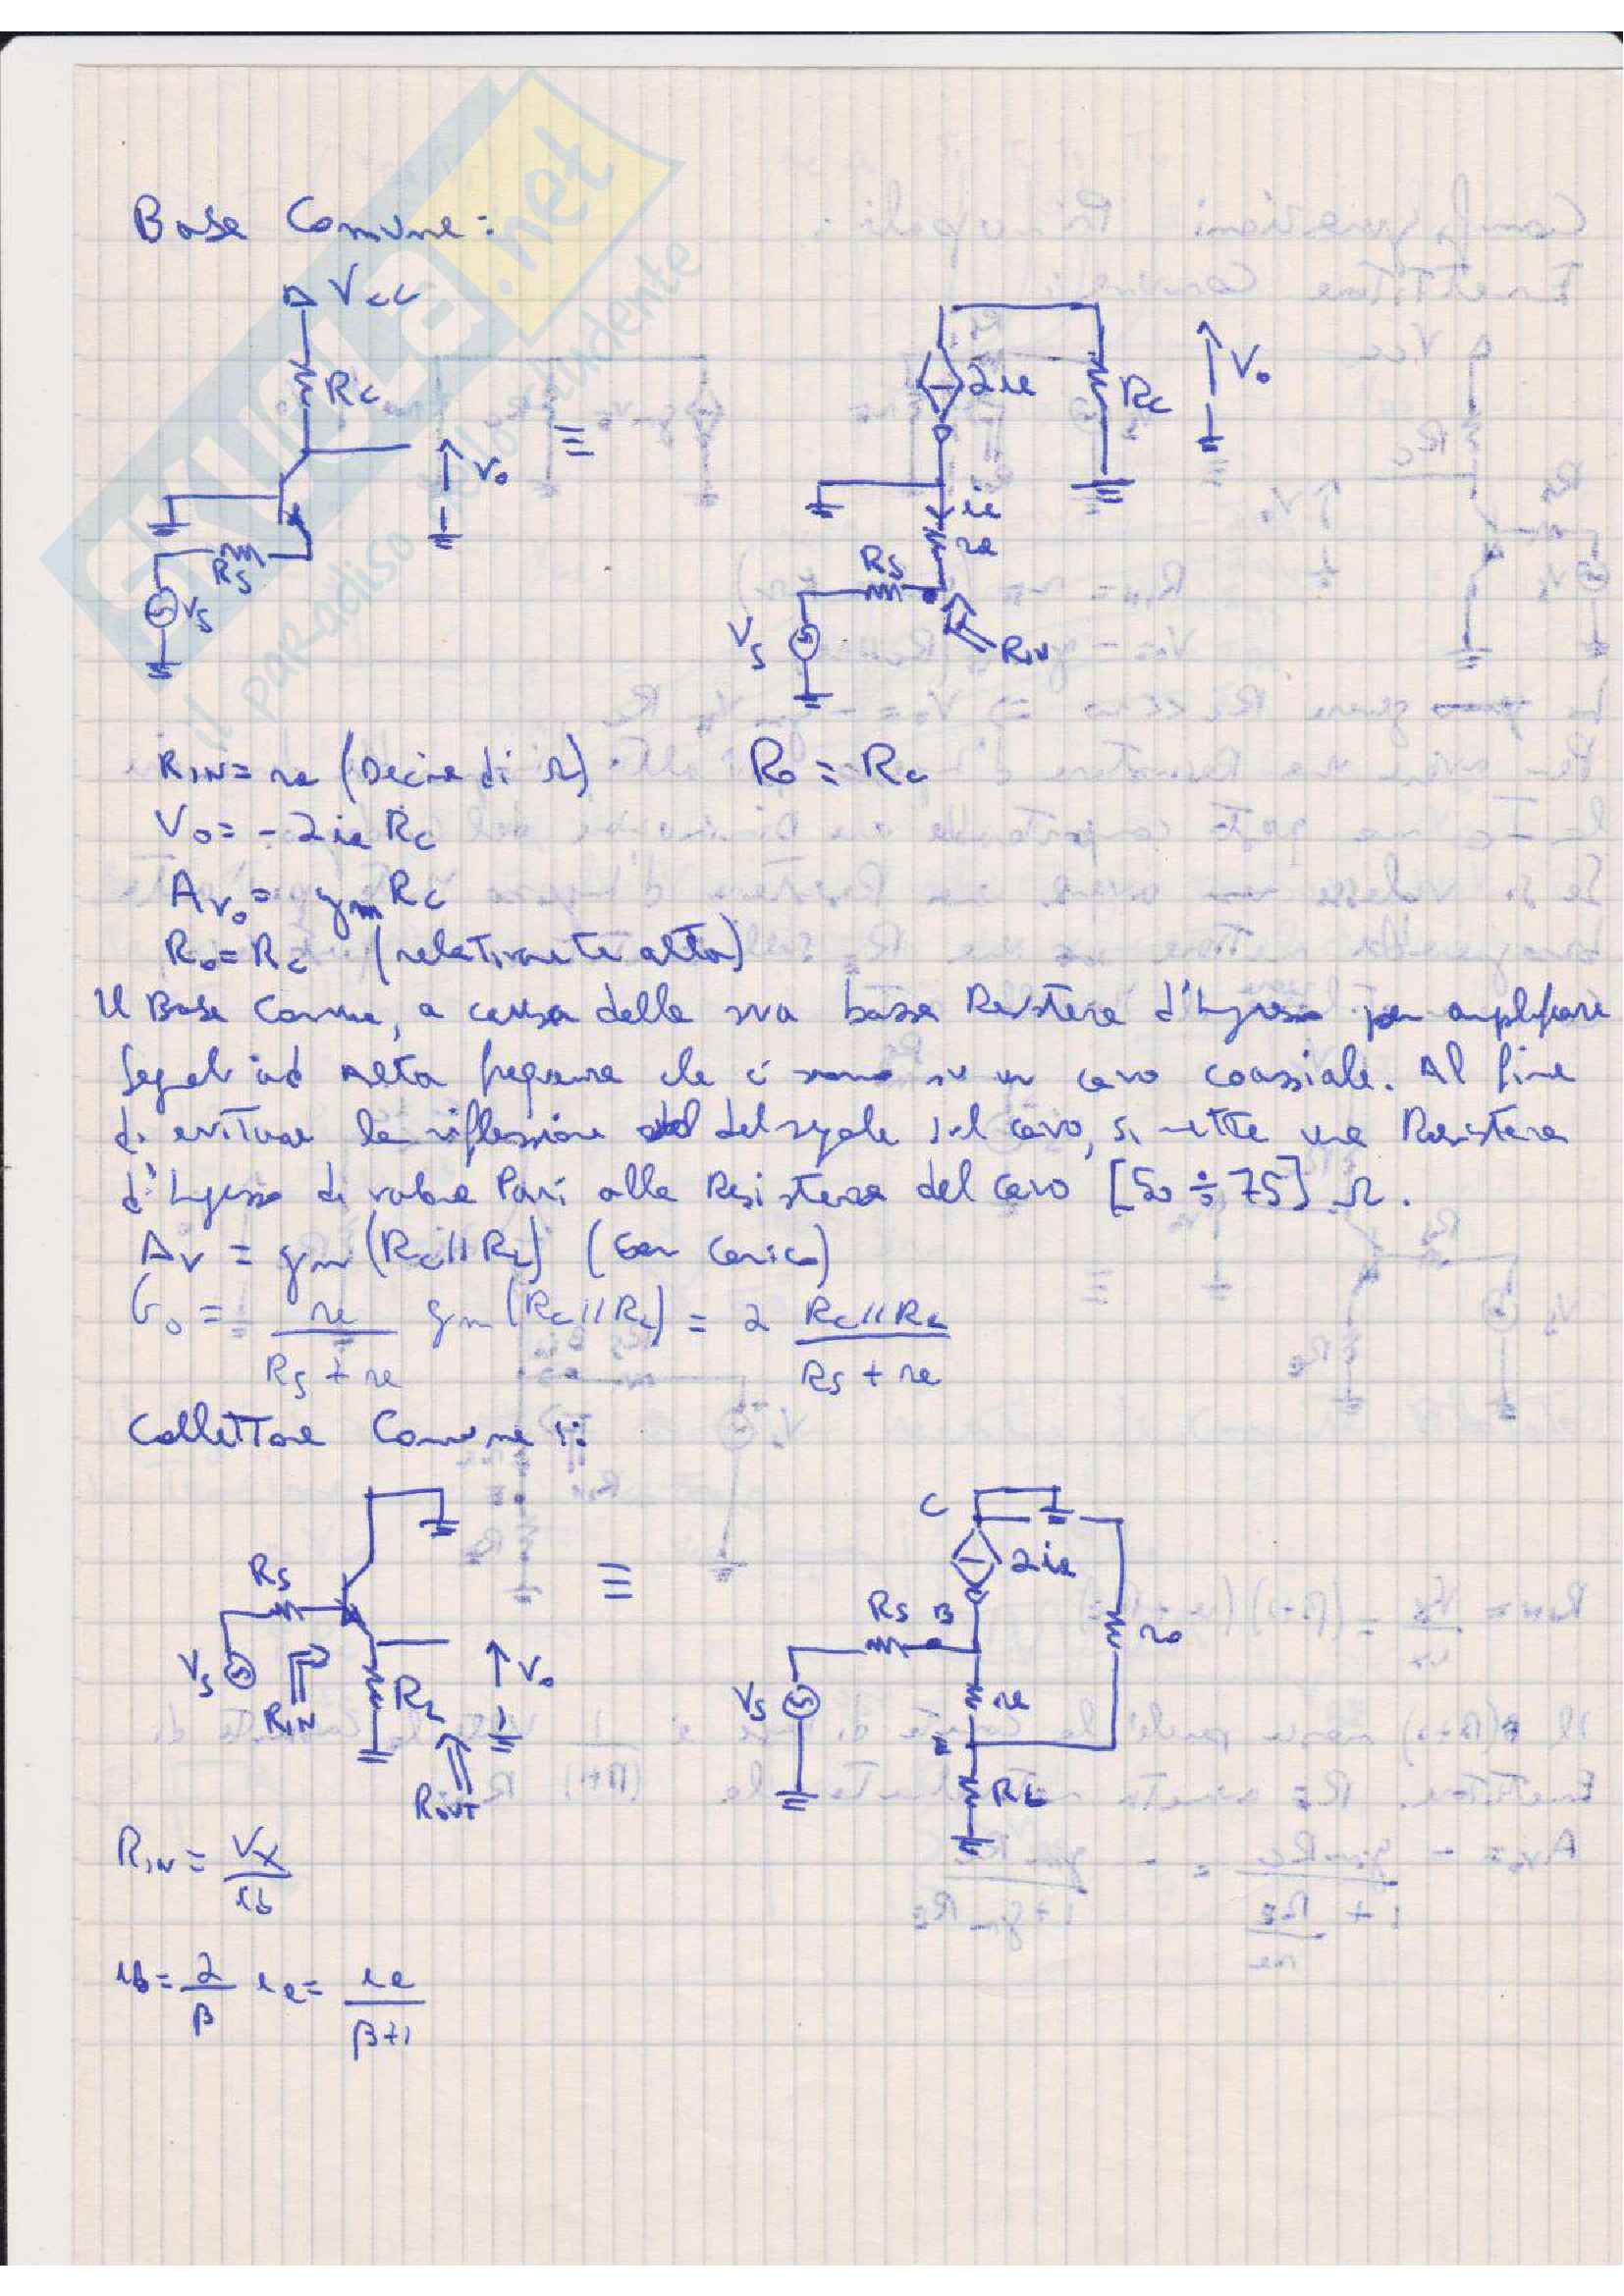 Base Comune:
Vcc
Rc
Vo
Rs
Vs
≡
αie
Rc
Vo
ie
re
Rs
Vs
RIN
RIN = re (Decine di Ω) Ro = Rc
Vo = - αie Rc
Avo = gm Rc
Ro = Rc (relativamente alta)
Il Base Comune, a causa della sua bassa Resistenza d'Ingresso per amplificare
segnali ad Alta frequenza che ci sono su un cavo coassiale. Al fine
di evitare la riflessione del segnale sul cavo, si mette una Resistenza
d'Ingresso di valore Pari alla Resistenza del cavo [50 ÷ 75] Ω.
Av = gm (Rc // RL) (Con Carico)
Go = re / (Rs + re) gm (Rc // RL) = α (Rc // RL) / (Rs + re)
Collettore Comune:
Rs
Vs
RIN
RL
Vo
ROUT
≡
C
αie
Rs B
ro
re
Vs
RL
RIN = Vx / ib
ib = α / β ie = ie / (β+1)
skuola.net
il paradiso dello studente